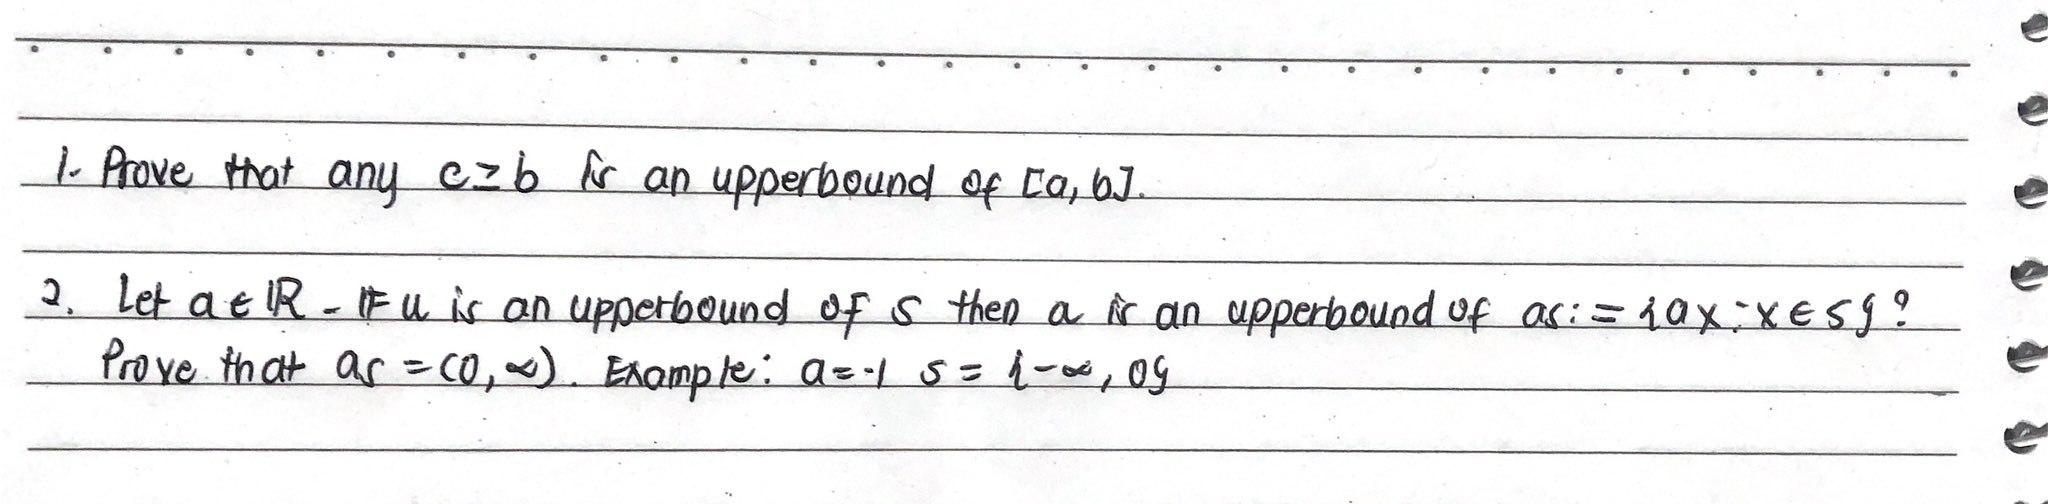 1. Prove that any c ≥ b is an upperbound of [a, b].
2. Let a ∈ ℝ - If u is an upperbound of S then a is an upperbound of as: = {ax : x ∈ S}?
Prove that as = (0, ∞). Example: a = -1 S = {-∞, 0}